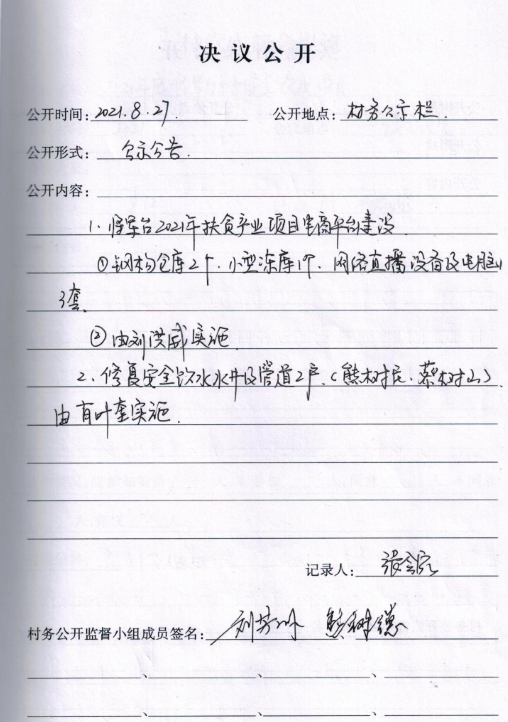 决议公开
公开时间：2021.8.27. 公开地点：村务公示栏.
公开形式：公示公告.
公开内容：
1、将军台2021年扶贫产业项目电商平台建设
①钢构仓库2个、小型冻库1个、网络直播设备及电脑
3套.
②由刘洪威实施.
2、修复安全饮水水井及管道2户.（熊树后、蔡树山）
由 叶奎实施.
记录人：张
村务公开监督小组成员签名：刘 熊树德